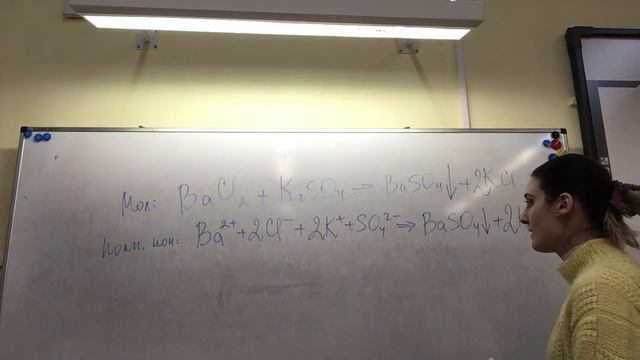 Мол: BaCl₂ + K₂SO₄ ⇒ BaSO₄↓ + 2KCl
Полн. ион: Ba²⁺ + 2Cl⁻ + 2K⁺ + SO₄²⁻ ⇒ BaSO₄↓ + 2K